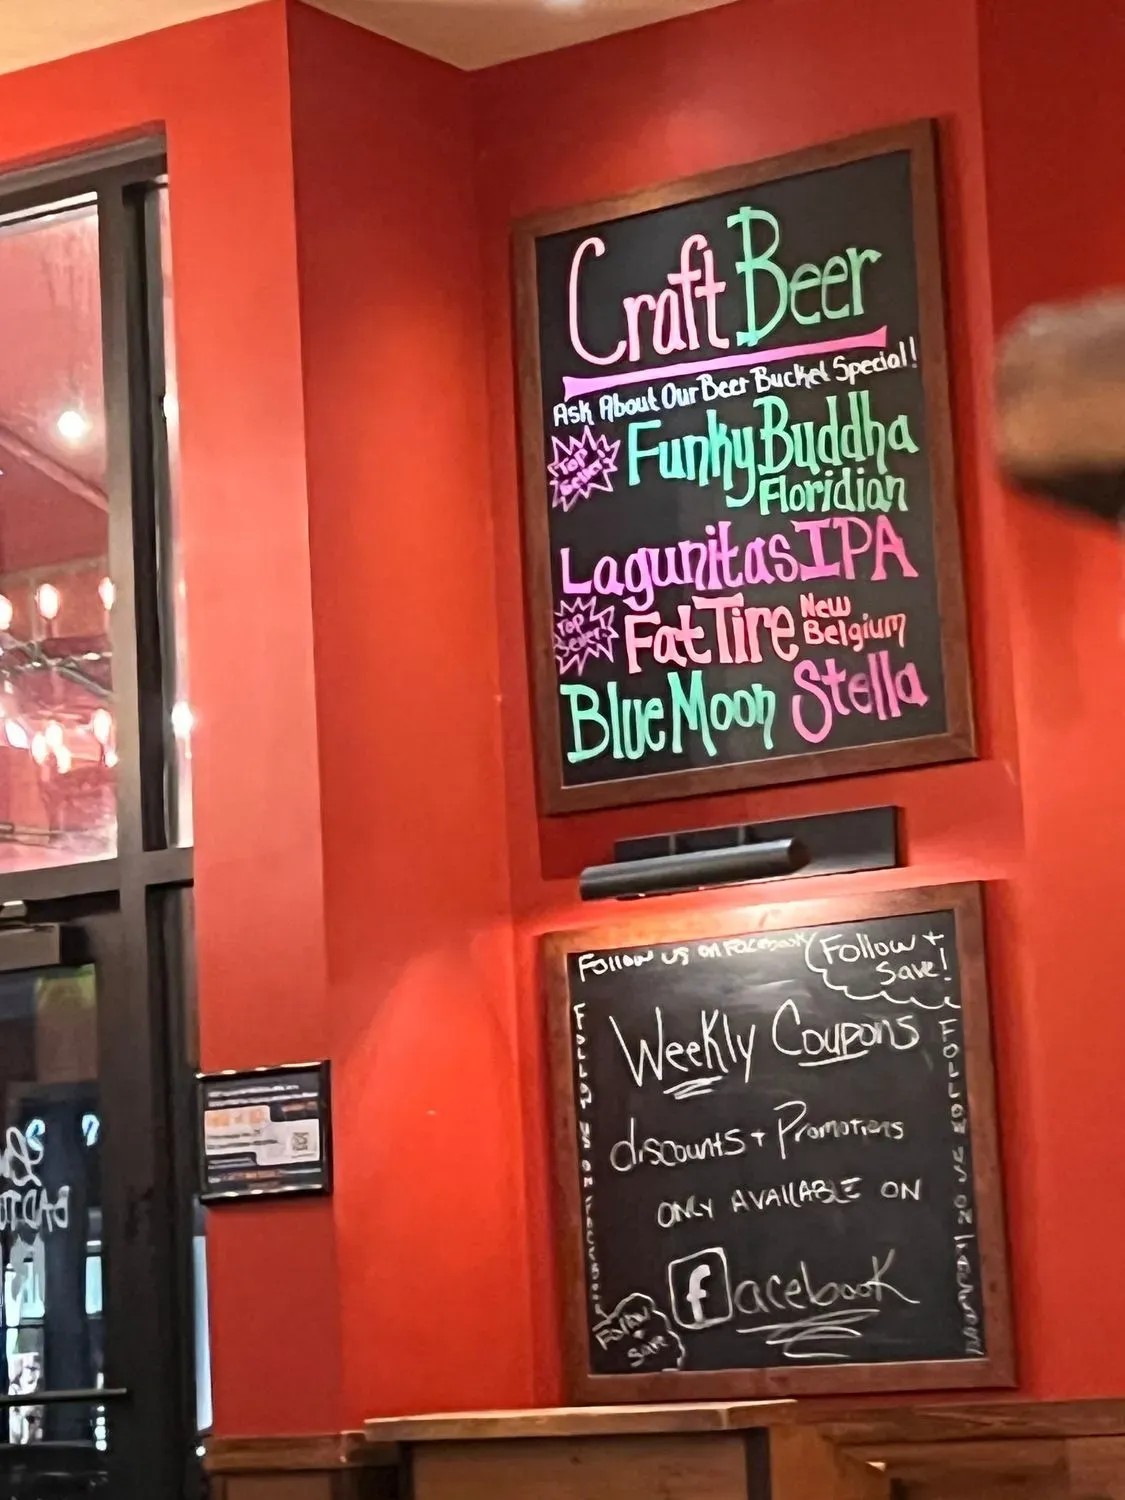 Craft Beer
Ask About Our Beer Bucket Special!
Top
Seller!
Funky Buddha
Floridian
Lagunitas IPA
Top
Seller!
Fat Tire New
Belgium
Blue Moon Stella
Follow us on Facebook
Follow +
Save!
Weekly Coupons
discounts + Promotions
ONLY AVAILABLE ON
facebook
FOLLOW US ON FACEBOOK
FOLLOW US ON FACEBOOK
Follow
+
Save